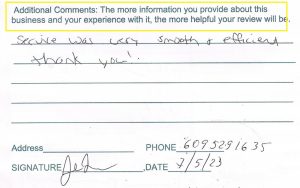 Additional Comments: The more information you provide about this
business and your experience with it, the more helpful your review will be.
Service was very smooth & efficient
thank you!
Address PHONE 6095291635
SIGNATURE DATE 7/5/23